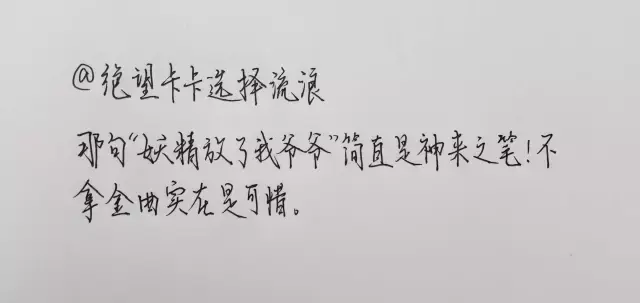 @绝望卡卡选择流浪
那句“妖精放了我爷爷”简直是神来之笔！不
拿金曲实在是可惜。